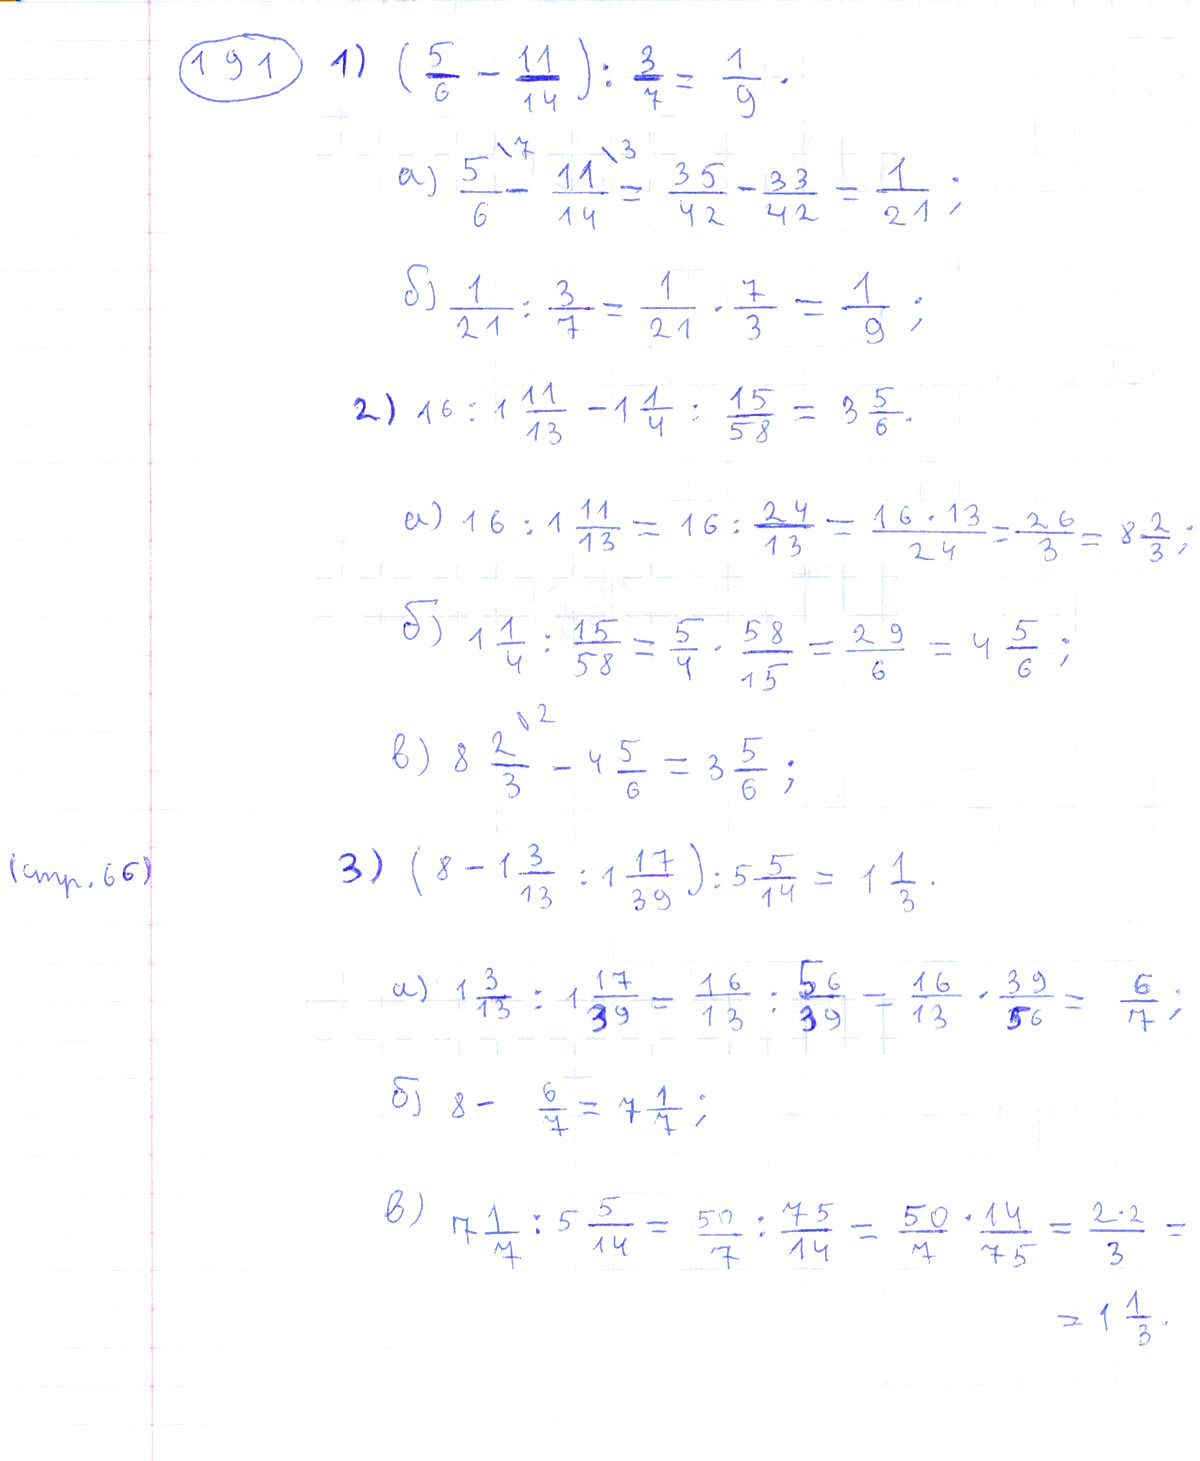 191 1) (5/6 - 11/14) : 3/7 = 1/9.
а) 5/6 \7 - 11/14 \3 = 35/42 - 33/42 = 1/21;
б) 1/21 : 3/7 = 1/21 · 7/3 = 1/9;
2) 16 : 1 11/13 - 1 1/4 : 15/58 = 3 5/6.
а) 16 : 1 11/13 = 16 : 24/13 = 16·13/24 = 26/3 = 8 2/3;
б) 1 1/4 : 15/58 = 5/4 · 58/15 = 29/6 = 4 5/6;
в) 8 2/3 \2 - 4 5/6 = 3 5/6;
(стр. 66) 3) (8 - 1 3/13 : 1 17/39) : 5 5/14 = 1 1/3.
а) 1 3/13 : 1 17/39 = 16/13 : 56/39 = 16/13 · 39/56 = 6/7;
б) 8 - 6/7 = 7 1/7;
в) 7 1/7 : 5 5/14 = 50/7 : 75/14 = 50/7 · 14/75 = 2·2/3 =
= 1 1/3.